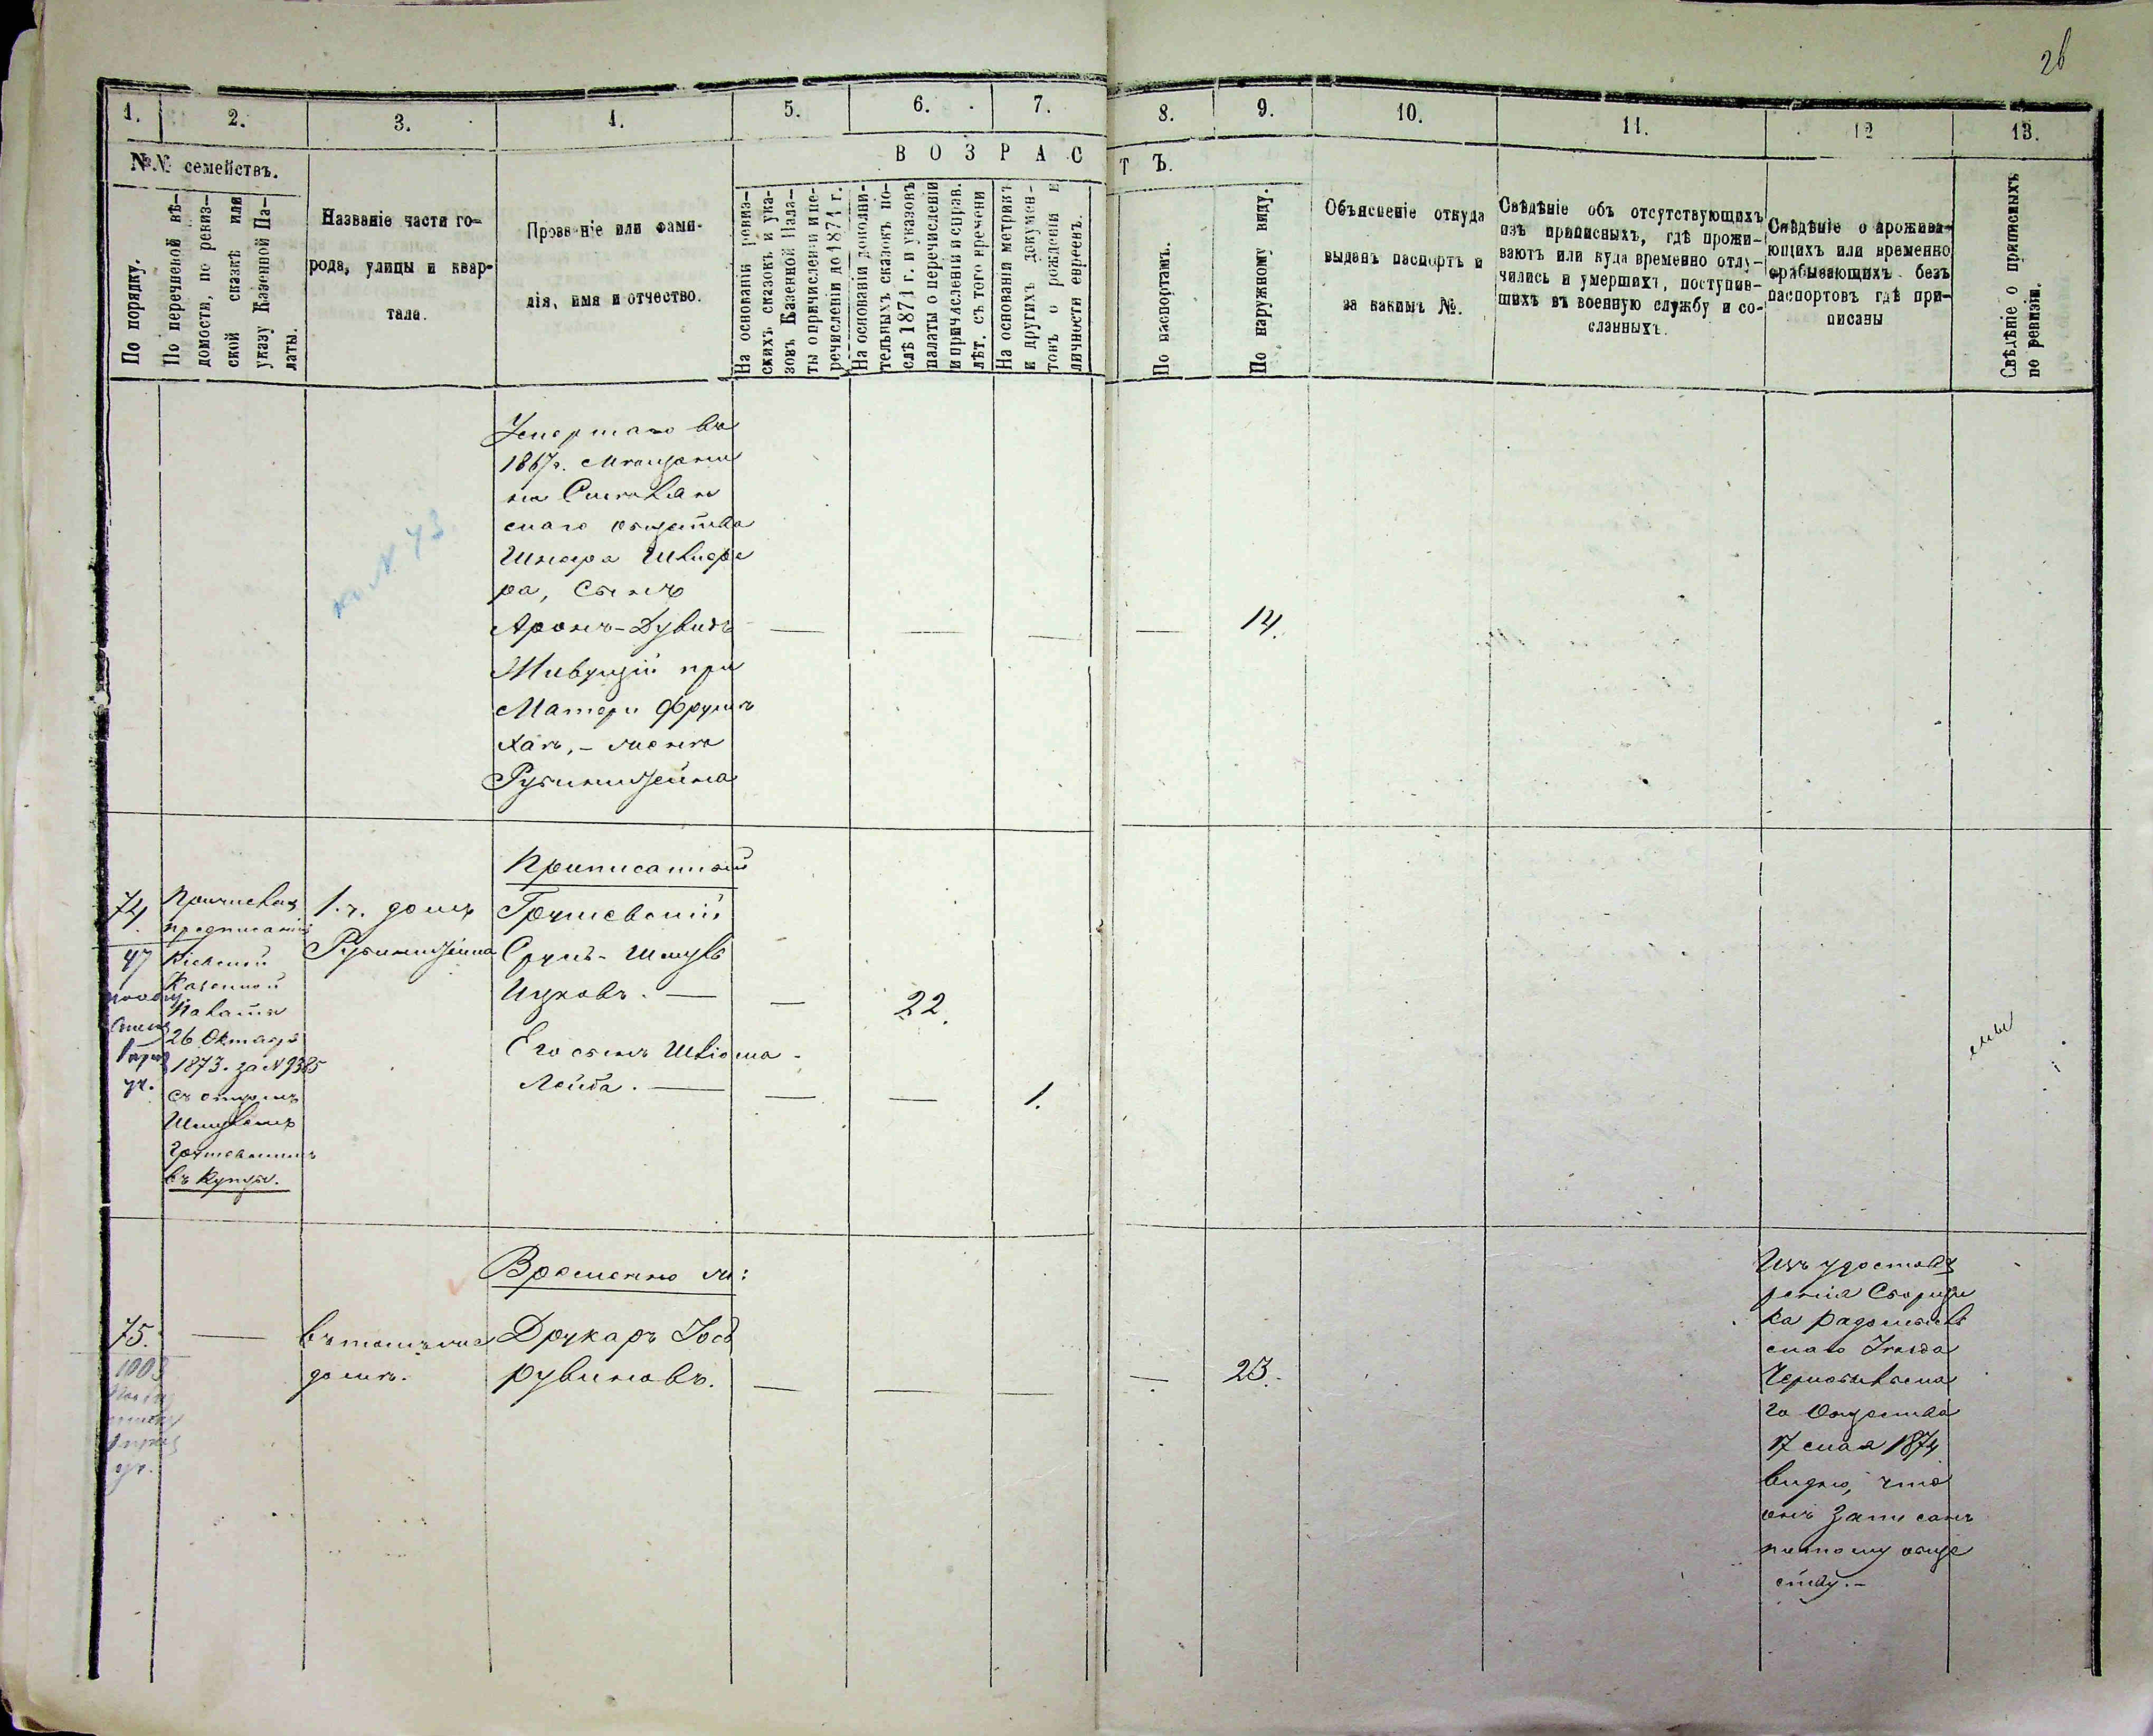 26
1. 2. 3. 4. 5. 6. 7. 8. 9. 10. 11. 12 13.
№№ семействъ.
ВОЗРАСТЪ.
По порядку.
По перечневой вѣ-
домости, по ревиз-
ской сказкѣ или
указу Казенной Па-
латы.
Названіе части го-
рода, улицы и квар-
тала.
Прозваніе или фами-
лія, имя и отчество.
На основаніи ревиз-
скихъ сказокъ и ука-
зовъ Казенной Пала-
ты о причисленіи и пе-
речисленіи до 1871 г.
На основаніи дополни-
тельныхъ сказокъ по-
слѣ 1871 г. и указовъ
палаты о перечисленіи
и причисленіи и справ.
лѣт. съ того времени
На основаніи метрикъ
и другихъ докумен-
товъ о рожденіи и
личности евреевъ.
По паспортамъ.
По наружному виду.
Объясненіе откуда
выданъ паспортъ и
за какимъ №.
Свѣдѣніе объ отсутствующихъ
изъ приписныхъ, гдѣ прожи-
ваютъ или куда временно отлу-
чились и умершихъ, поступив-
шихъ въ военную службу и со-
сланныхъ.
Свѣдѣніе о прожива-
ющихъ или временно
прабывающихъ безъ
паспортовъ гдѣ при-
писаны
Свѣдѣніе о приписныхъ
по ревизіи.
Умершаго въ
1867г. Мѣщани
на
скаго общества
Шнеера
ра, Сынъ
Аронъ-Дувидъ — — — — 14.
Живущій при
Матери
Рубинштейна
№ 43
Приписанный
74 1.ч. домъ
Рубинштейна
47
Причислен
предписаніемъ
Кіевской
Казенной
Палаты
26 Октября
1873. за № 9385
съ отцомъ
Шмулемъ
въ купцы.
Срулъ-Шмуль
Ицковъ. — — 22.
Его сынъ Шліома-
Лейба. — — — 1.
Временно жи:
75. — въ томъ же
домѣ.
1003
Друкаръ Іось
Рувиновъ. — — — — 23.
Изъ удостовѣ
ренія Сборщи
ка Радомысль
скаго Уѣзда
Чернобыльска
го Общества
17 мая 1874
видно, что
онъ записанъ
по тому обще
ству.—